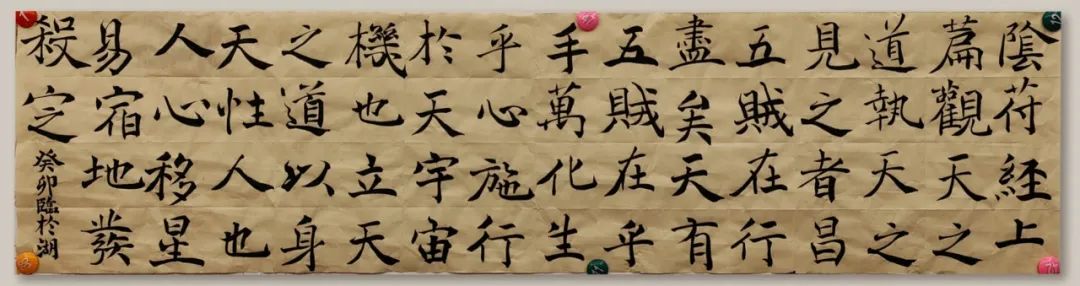 陰苻經上
篇觀天之
道執天之
見之者昌
五賊在行
盡矣天有
五賊在乎
手萬化生
乎心施行
於天宇宙
機也立天
之道以身
天性人也
人心移星
易宿地發
殺定
癸卯臨於湖